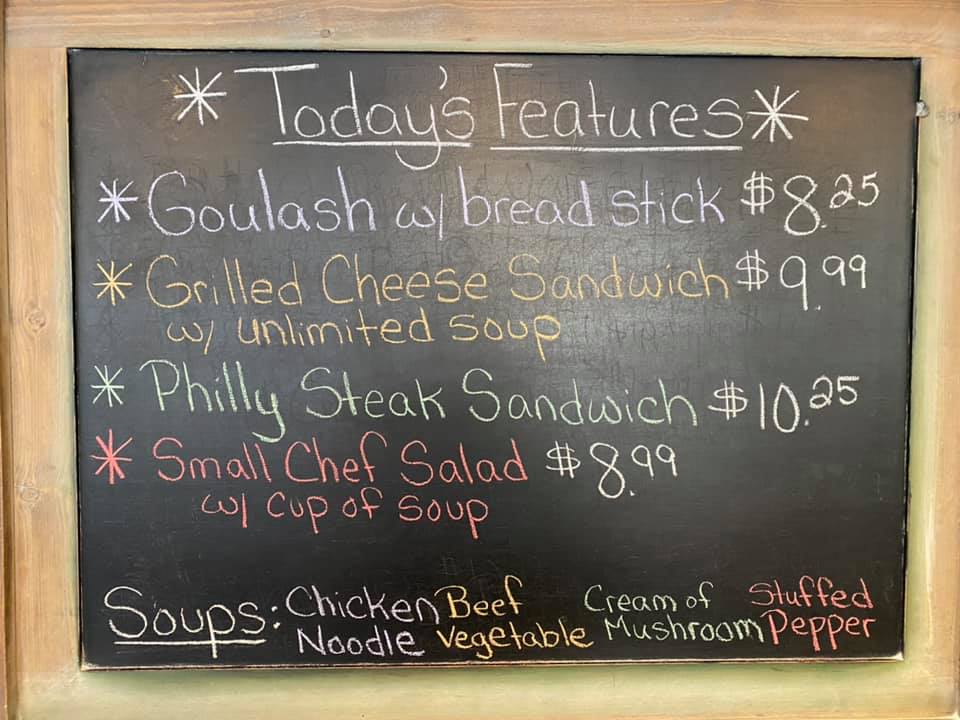 * Today's Features *
* Goulash w/ bread stick $8.25
* Grilled Cheese Sandwich $9.99
w/ unlimited soup
* Philly Steak Sandwich $10.25
* Small Chef Salad $8.99
w/ cup of soup
Soups: Chicken Noodle
Beef Vegetable
Cream of Mushroom
Stuffed Pepper